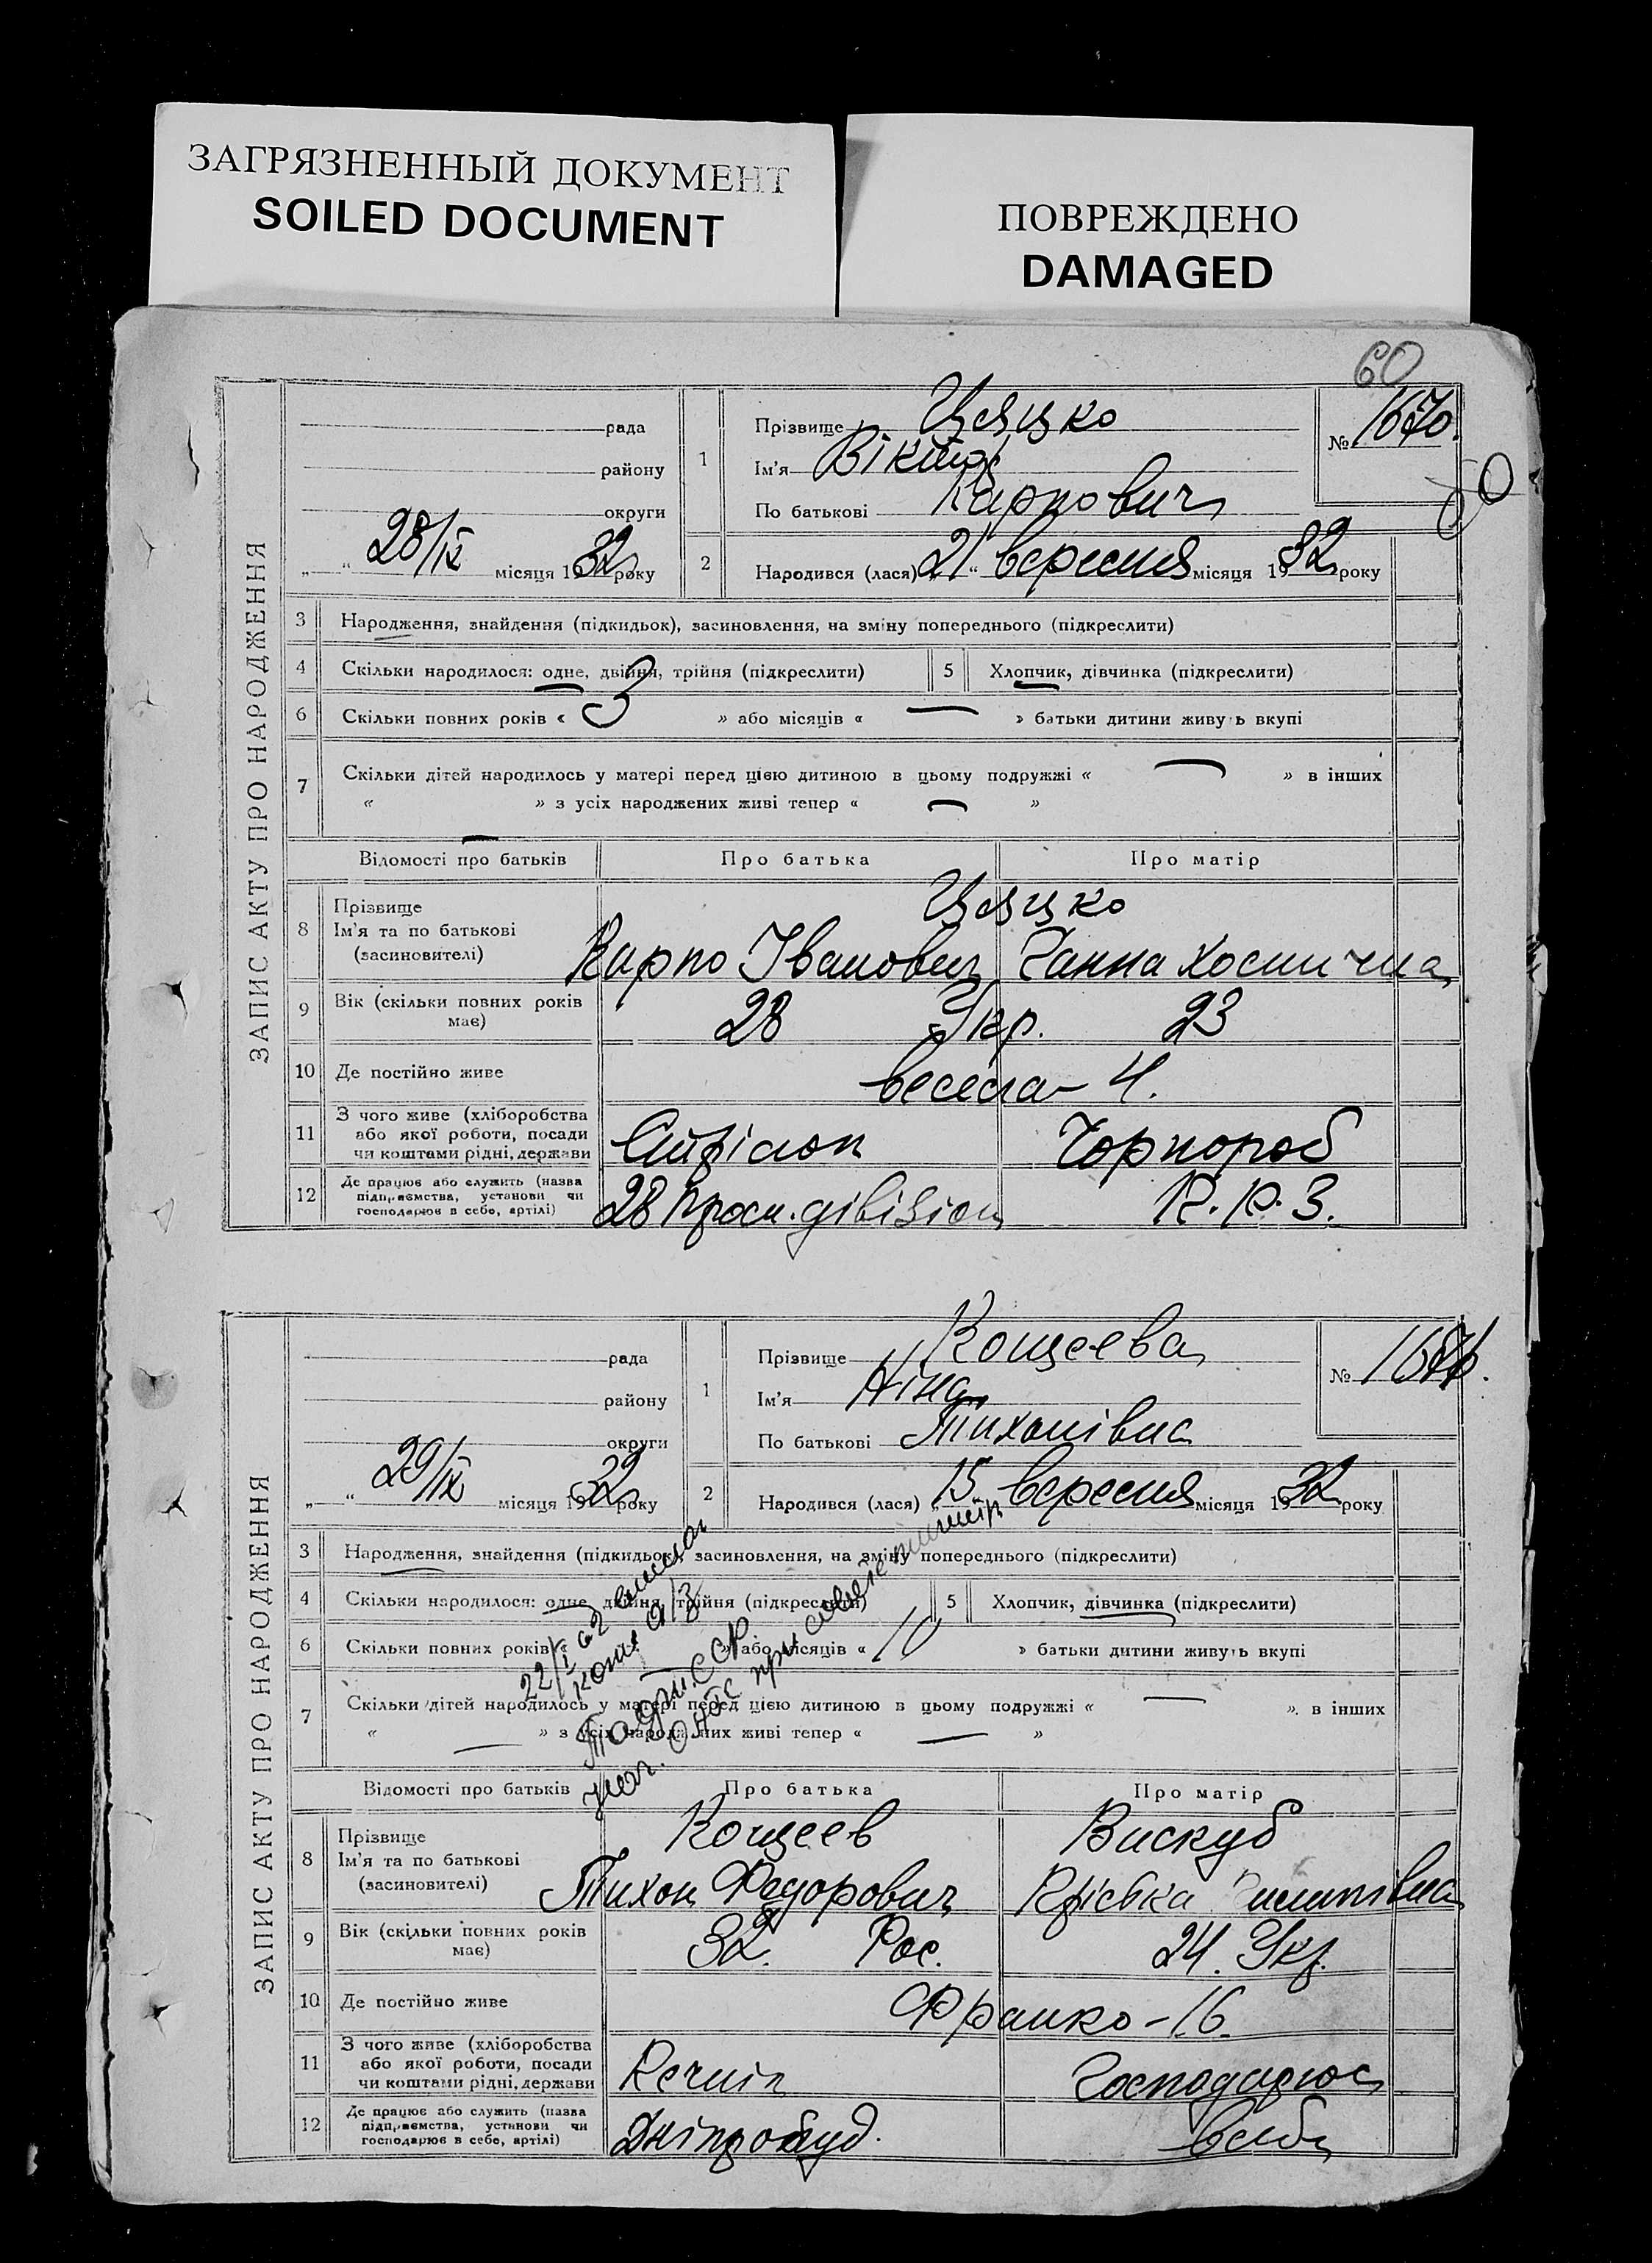 ЗАГРЯЗНЕННЫЙ ДОКУМЕНТ
SOILED DOCUMENT
ПОВРЕЖДЕНО
DAMAGED
60
ЗАПИС АКТУ ПРО НАРОДЖЕННЯ
рада
району
округи
„ “ 28/IX місяця 1932 року
1
Прізвище Цяцко
Ім'я Віктор
По батькові Карпович
№ 1670.
2
Народився (лася) „21“ вересня місяця 1932 року
3 Народження, знайдення (підкидьок), засиновлення, на зміну попереднього (підкреслити)
4 Скільки народилося: одне, двійня, трійня (підкреслити)
5 Хлопчик, дівчинка (підкреслити)
6 Скільки повних років « 3 » або місяців « — » батьки дитини живуть вкупі
7 Скільки дітей народилось у матері перед цією дитиною в цьому подружжі « — » в інших
« — » з усіх народжених живі тепер « — »
Відомості про батьків Про батька Про матір
8 Прізвище
Ім'я та по батькові
(засиновителі)
Цяцко
Карпо Іванович Ганна
9 Вік (скільки повних років
має)
28 Укр. 23
10 Де постійно живе
Весела – 4.
11 З чого живе (хліборобства
або якої роботи, посади
чи коштами рідні, держави
Стрілок Чорнороб
12 Де працює або служить (назва
підприємства, установи чи
господарює в себе, артілі)
28 дівізіон Р.Р.З.
ЗАПИС АКТУ ПРО НАРОДЖЕННЯ
рада
району
округи
„ “ 29/IX місяця 1932 року
1
Прізвище Кощеева
Ім'я Ніна
По батькові Тихонівна
№ 1671.
2
Народився (лася) „15“ вересня місяця 1932 року
3 Народження, знайдення (підкидьок), засиновлення, на зміну попереднього (підкреслити)
4 Скільки народилося: одне, двійня, трійня (підкреслити)
5 Хлопчик, дівчинка (підкреслити)
6 Скільки повних років « — » або місяців « 10 » батьки дитини живуть вкупі
7 Скільки дітей народилось у матері перед цією дитиною в цьому подружжі « — » в інших
« — » з усіх народжених живі тепер « — »
22/I 62
копия а/з
Тадж. ССР
при совете
Відомості про батьків Про батька Про матір
8 Прізвище
Ім'я та по батькові
(засиновителі)
Кощеев Вискуб
Тихон Федорович
9 Вік (скільки повних років
має)
32. Рос. 24. Укр.
10 Де постійно живе
Франко – 16.
11 З чого живе (хліборобства
або якої роботи, посади
чи коштами рідні, держави
Господарює
12 Де працює або служить (назва
підприємства, установи чи
господарює в себе, артілі)
Дніпробуд. в себе